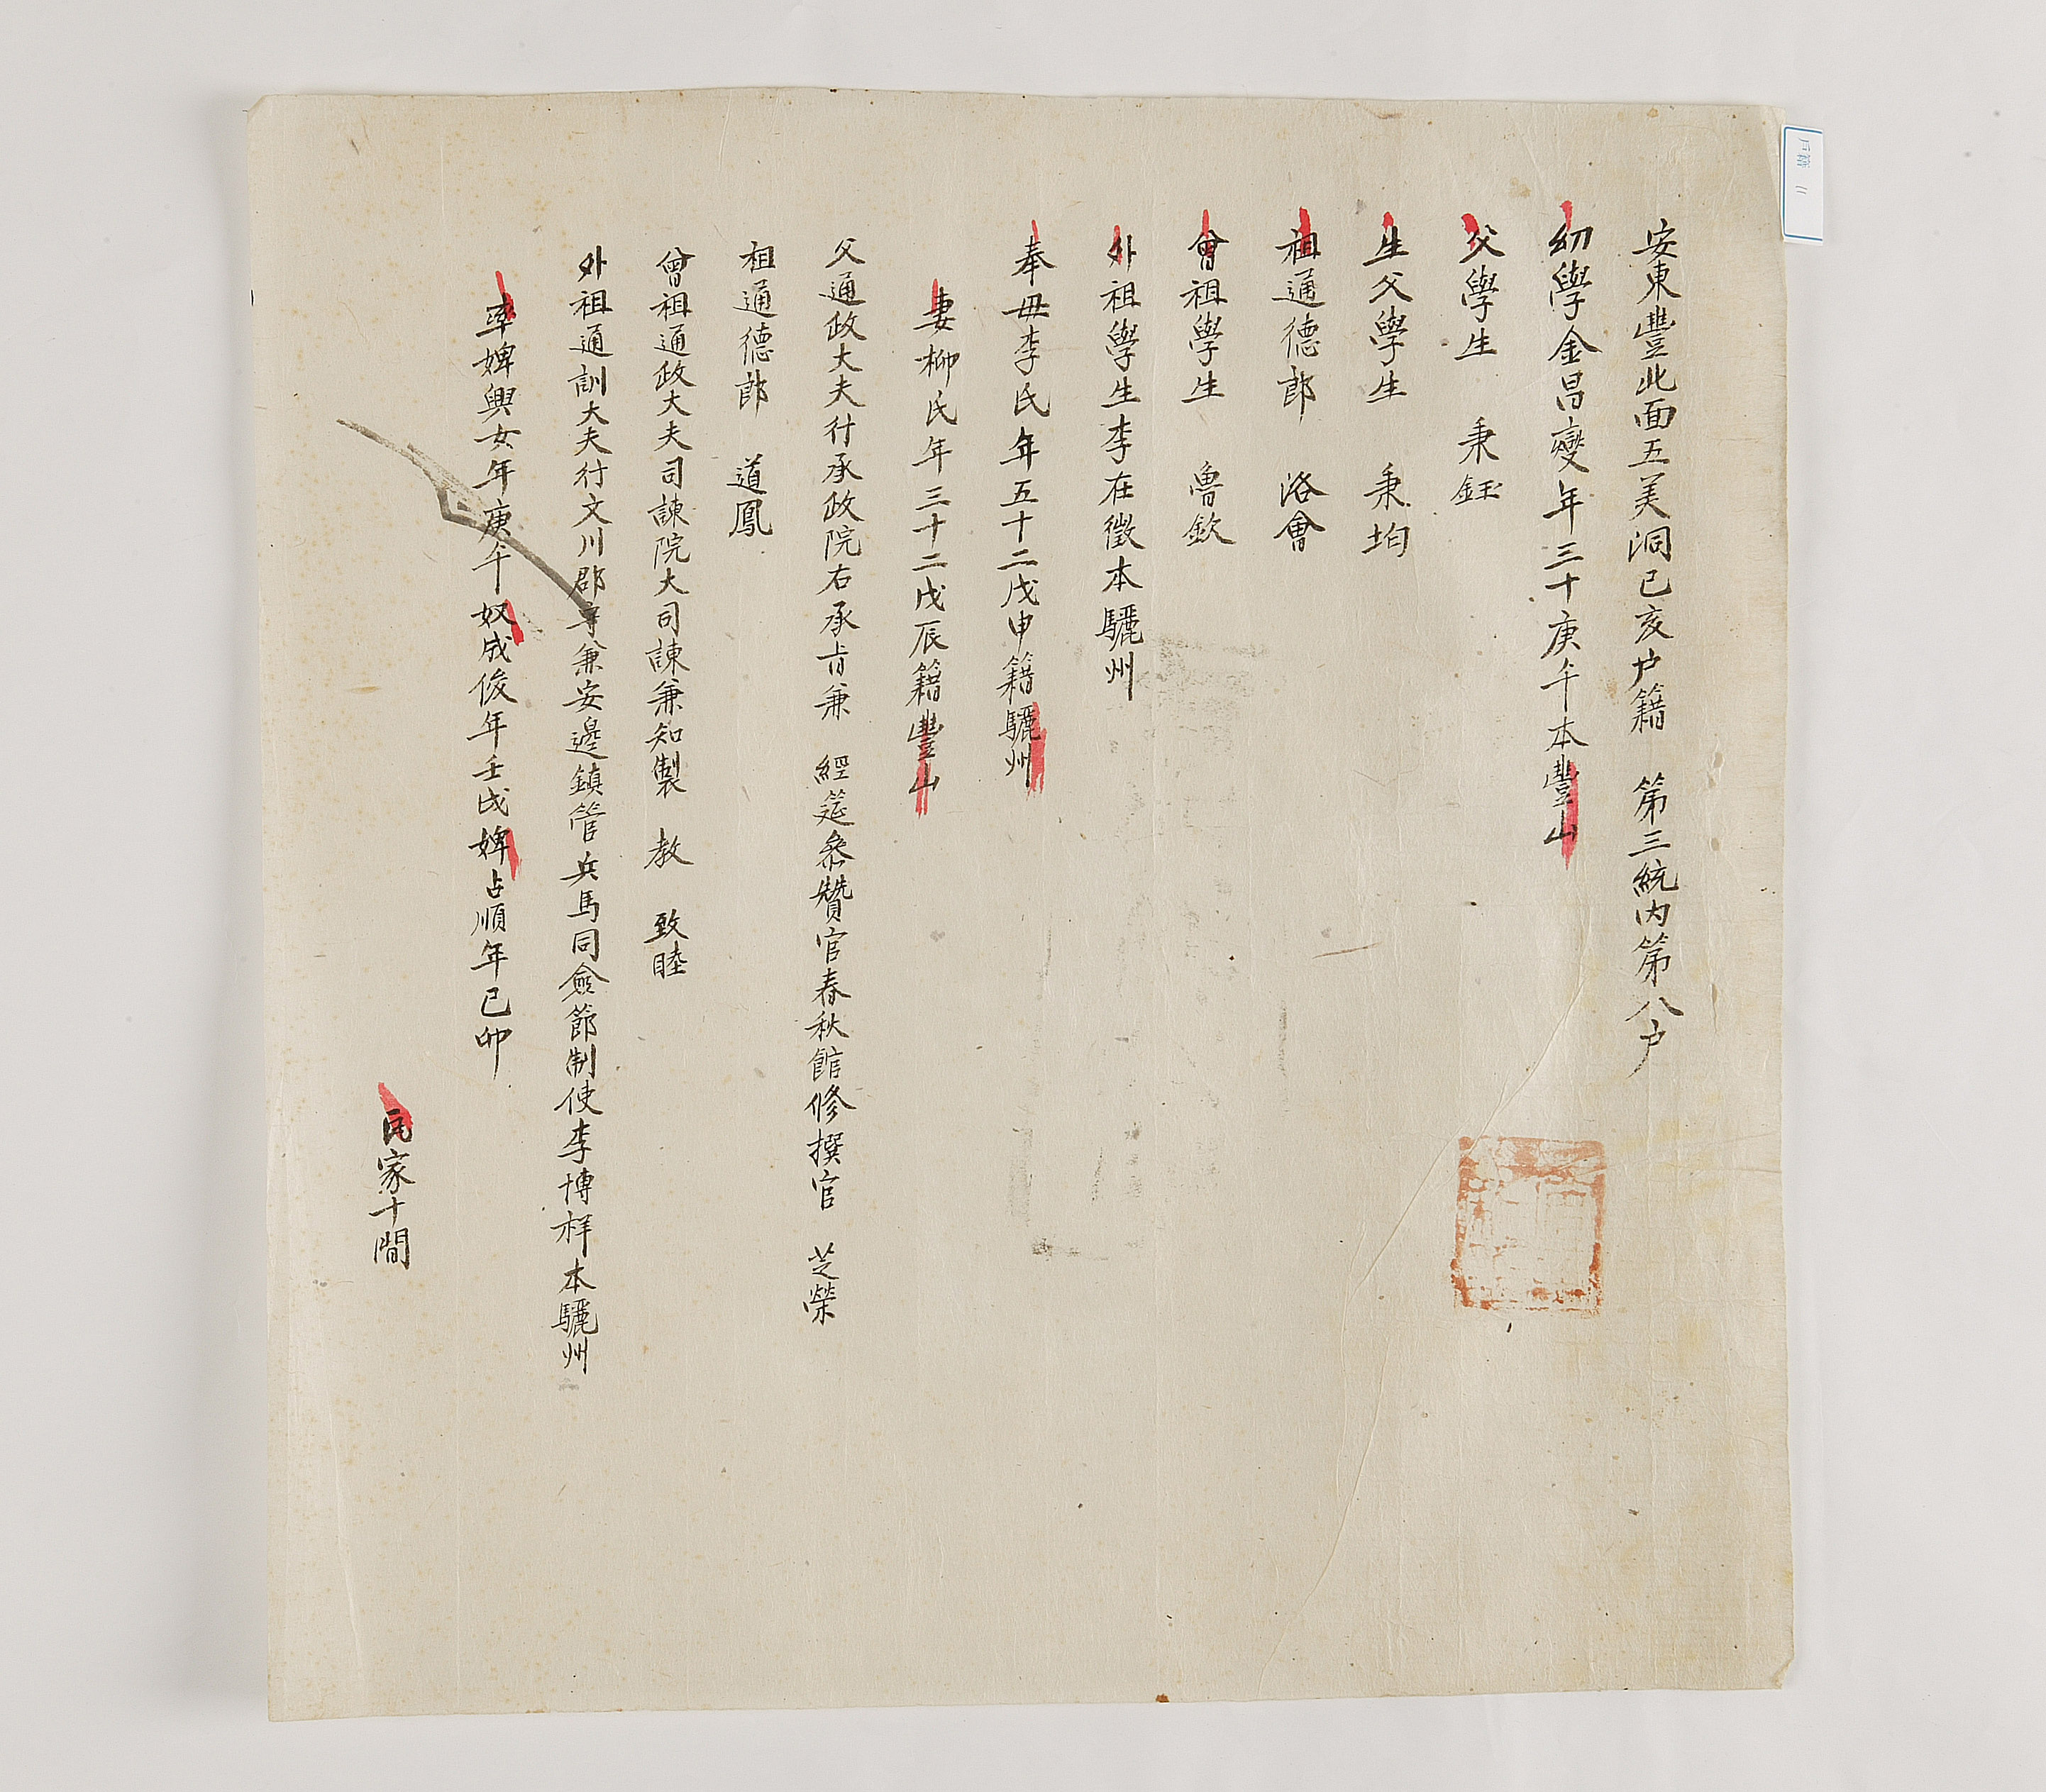 安東豐北面五美洞己亥户籍 第三統內第八户
幼學金昌燮年三十庚午本豐山
父學生 秉鈺
生父學生 秉均
祖通德郎 洛會
曾祖學生 魯欽
外祖學生李在徵本驪州
奉母李氏年五十二戊申籍驪州
妻柳氏年三十二戊辰籍豐山
父通政大夫行承政院右承旨兼 經筵叅贊官春秋館修撰官 芝榮
祖通德郎 道鳳
曾祖通政大夫司諫院大司諫兼知製 教 致睦
外祖通訓大夫行文川郡守兼安邊鎮管兵馬同僉節制使李博祥本驪州
率婢興女年庚午奴成俊年壬戌婢占順年己卯
瓦家十間
户籍 11